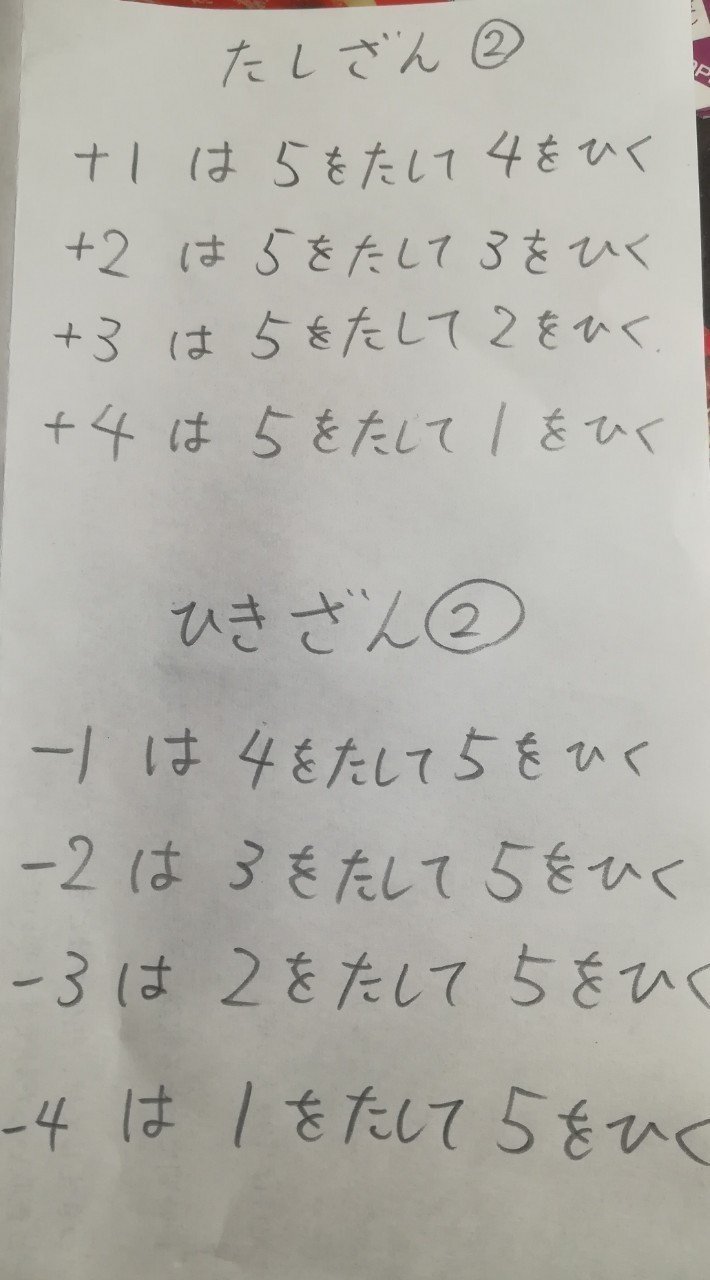 たしざん②
+1 は 5をたして 4をひく
+2 は 5をたして 3をひく
+3 は 5をたして 2をひく
+4 は 5をたして 1をひく
ひきざん②
-1 は 4をたして 5をひく
-2 は 3をたして 5をひく
-3 は 2をたして 5をひく
-4 は 1をたして 5をひく